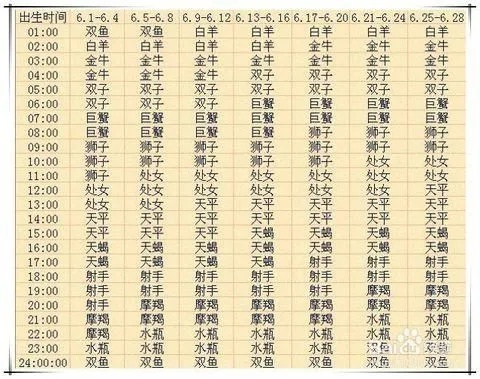 出生时间 6.1-6.4 6.5-6.8 6.9-6.12 6.13-6.16 6.17-6.20 6.21-6.24 6.25-6.28
01:00 双鱼 双鱼 白羊 白羊 白羊 白羊 白羊
02:00 白羊 白羊 白羊 白羊 金牛 金牛 金牛
03:00 金牛 金牛 金牛 金牛 金牛 金牛 金牛
04:00 金牛 金牛 金牛 双子 双子 双子 双子
05:00 双子 双子 双子 双子 双子 双子 双子
06:00 双子 双子 巨蟹 巨蟹 巨蟹 巨蟹 巨蟹
07:00 巨蟹 巨蟹 巨蟹 巨蟹 巨蟹 巨蟹 巨蟹
08:00 巨蟹 巨蟹 巨蟹 狮子 狮子 狮子 狮子
09:00 狮子 狮子 狮子 狮子 狮子 狮子 狮子
10:00 狮子 狮子 狮子 狮子 狮子 处女 处女
11:00 狮子 处女 处女 处女 处女 处女 处女
12:00 处女 处女 处女 处女 处女 处女 天平
13:00 处女 处女 天平 天平 天平 天平 天平
14:00 天平 天平 天平 天平 天平 天平 天平
15:00 天平 天平 天平 天蝎 天蝎 天蝎 天蝎
16:00 天蝎 天蝎 天蝎 天蝎 天蝎 天蝎 天蝎
17:00 天蝎 天蝎 天蝎 天蝎 射手 射手 射手
18:00 射手 射手 射手 射手 射手 射手 射手
19:00 射手 射手 射手 射手 射手 摩羯 摩羯
20:00 射手 摩羯 摩羯 摩羯 摩羯 摩羯 摩羯
21:00 摩羯 摩羯 摩羯 摩羯 摩羯 水瓶 水瓶
22:00 摩羯 水瓶 水瓶 水瓶 水瓶 水瓶 水瓶
23:00 水瓶 水瓶 水瓶 水瓶 水瓶 双鱼
24:00:00 双鱼 双鱼 双鱼 双鱼 双鱼 双鱼 双鱼